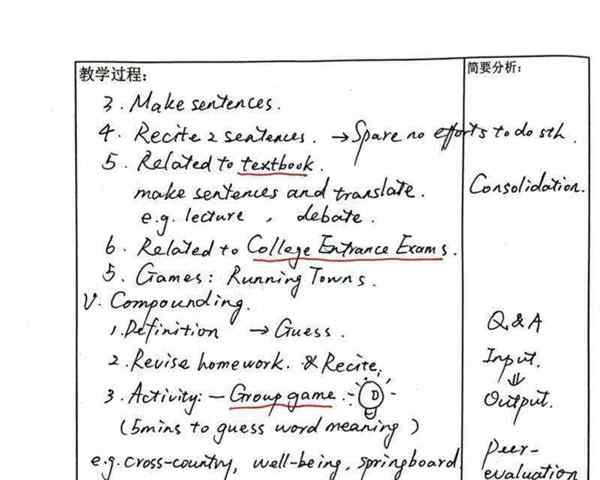 教学过程：
简要分析：
3. Make sentences.
4. Recite 2 sentences. → Spare no efforts to do sth.
5. Related to textbook.
make sentences and translate.
Consolidation.
e.g. lecture , debate.
6. Related to College Entrance Exams.
5. Games: Running Towns.
V. Compounding.
1. Definition → Guess.
Q & A
2. Revise homework. & Recite.
Input.
⇓
3. Activity: — Group game.
Output.
(5mins to guess word meaning )
e.g. cross-country, well-being, springboard
Peer-
evaluation